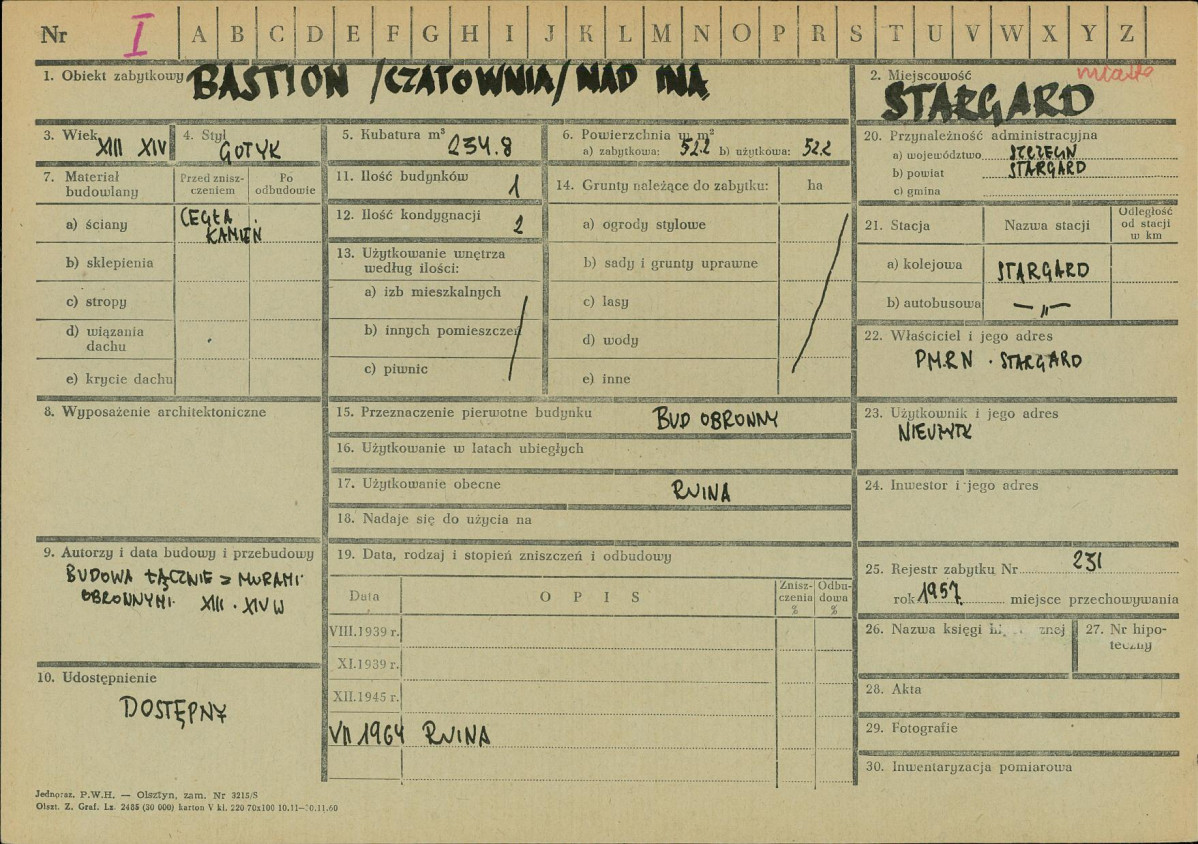 Nr I A B C D E F G H I J K L M N O P R S T U V W X Y Z
1. Obiekt zabytkowy BASTION /CZATOWNIA/ NAD INĄ
2. Miejscowość miasto
STARGARD
3. Wiek XIII XIV
4. Styl GOTYK
5. Kubatura m³ 234.8
6. Powierzchnia w m²
a) zabytkowa: 52.2 b) użytkowa: 52.2
20. Przynależność administracyjna
a) województwo SZCZECIN
b) powiat STARGARD
c) gmina
7. Materiał budowlany
Przed znisz-
czeniem
Po
odbudowie
a) ściany CEGŁA
KAMIEŃ
b) sklepienia
c) stropy
d) wiązania
dachu
e) krycie dachu
11. Ilość budynków 1
12. Ilość kondygnacji 2
13. Użytkowanie wnętrza
według ilości:
a) izb mieszkalnych
b) innych pomieszczeń
c) piwnic
14. Grunty należące do zabytku: ha
a) ogrody stylowe
b) sady i grunty uprawne
c) lasy
d) wody
e) inne
21. Stacja Nazwa stacji
Odległość
od stacji
w km
a) kolejowa STARGARD
b) autobusowa —„—
22. Właściciel i jego adres
P.M.R.N. STARGARD
8. Wyposażenie architektoniczne
15. Przeznaczenie pierwotne budynku BUD OBRONNY
16. Użytkowanie w latach ubiegłych
17. Użytkowanie obecne RUINA
18. Nadaje się do użycia na
23. Użytkownik i jego adres
NIEUŻYTK
24. Inwestor i jego adres
9. Autorzy i data budowy i przebudowy
BUDOWA ŁĄCZNIE Z MURAMI
OBRONNYMI XIII . XIV W
10. Udostępnienie
DOSTĘPNY
19. Data, rodzaj i stopień zniszczeń i odbudowy
Data O P I S
Znisz-
czenia
%
Odbu-
dowa
%
VIII.1939 r.
XI.1939 r.
XII.1945 r.
VII 1964 RUINA
25. Rejestr zabytku Nr 231
rok 1957 miejsce przechowywania
26. Nazwa księgi
27. Nr hipo-
teczny
28. Akta
29. Fotografie
30. Inwentaryzacja pomiarowa
Jednoraz. P.W.H. — Olsztyn, zam. Nr 3215/S
Olszt. Z. Graf. Lz. 2485 (30 000) karton V kl. 220 70x100 10.11—